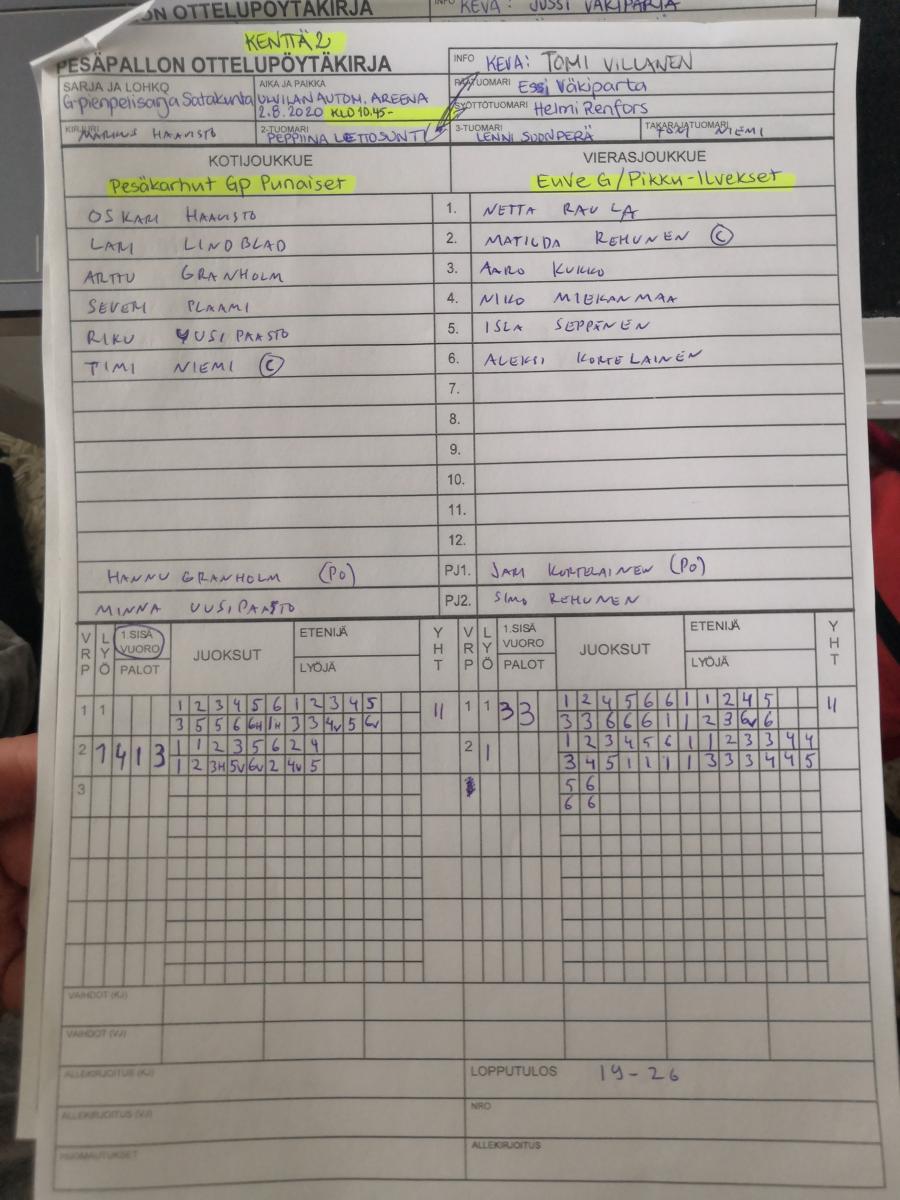 ON OTTELUPÖYTÄKIRJA
INFO KEVA: JUSSI VÄKIPARTA
KENTTÄ 2
PESÄPALLON OTTELUPÖYTÄKIRJA
INFO KEVA: TOMI VILLANEN
SARJA JA LOHKO
G-pienpelisarja Satakunta
AIKA JA PAIKKA
ULVILAN AUTOM. AREENA
2.8.2020 KLO 10.45-
PÄÄTUOMARI Essi Väkiparta
SYÖTTÖTUOMARI Helmi Renfors
KIRJURI MARKUS HAAVISTO
2-TUOMARI PEPPIINA LEHTOSUNTI
3-TUOMARI LENNI SUONPERÄ
TAKARAJATUOMARI TOMI NIEMI
KOTIJOUKKUE
VIERASJOUKKUE
Pesäkarhut Gp Punaiset
EuVe G/Pikku-Ilvekset
OSKARI HAAVISTO 1. NETTA RAULA
LARI LINDBLAD 2. MATILDA REHUNEN (C)
ARTTU GRANHOLM 3. AARO KUKKO
SEVERI PLAAMI 4. NIKO MIEKANMAA
RIKU UUSIPAASTO 5. ISLA SEPPÄNEN
TIMI NIEMI (C) 6. ALEKSI KORTELAINEN
7.
8.
9.
10.
11.
12.
HANNU GRANHOLM (PO) PJ1. JARI KORTELAINEN (PO)
MINNA UUSIPAASTO PJ2. SIMO REHUNEN
VRP LYÖ 1.SISÄ VUORO PALOT JUOKSUT ETENIJÄ LYÖJÄ YHT VRP LYÖ 1.SISÄ VUORO PALOT JUOKSUT ETENIJÄ LYÖJÄ YHT
1 1 1 2 3 4 5 6 1 2 3 4 5 11 1 1 3 3 1 2 4 5 6 6 1 1 2 4 5 11
3 5 5 6 6H 1H 3 3 4V 5 6V 3 3 6 6 6 1 1 2 3 6V 6
2 1 4 1 3 1 1 2 3 5 6 2 4 2 1 1 2 3 4 5 6 1 1 2 3 3 4 4
1 2 3H 5V 6V 2 4V 5 3 4 5 1 1 1 1 3 3 3 4 4 5
3 5 6
6 6
VAIHDOT (KJ)
VAIHDOT (VJ)
ALLEKIRJOITUS (KJ)
LOPPUTULOS 19-26
ALLEKIRJOITUS (VJ)
NRO
HUOMAUTUKSET
ALLEKIRJOITUS